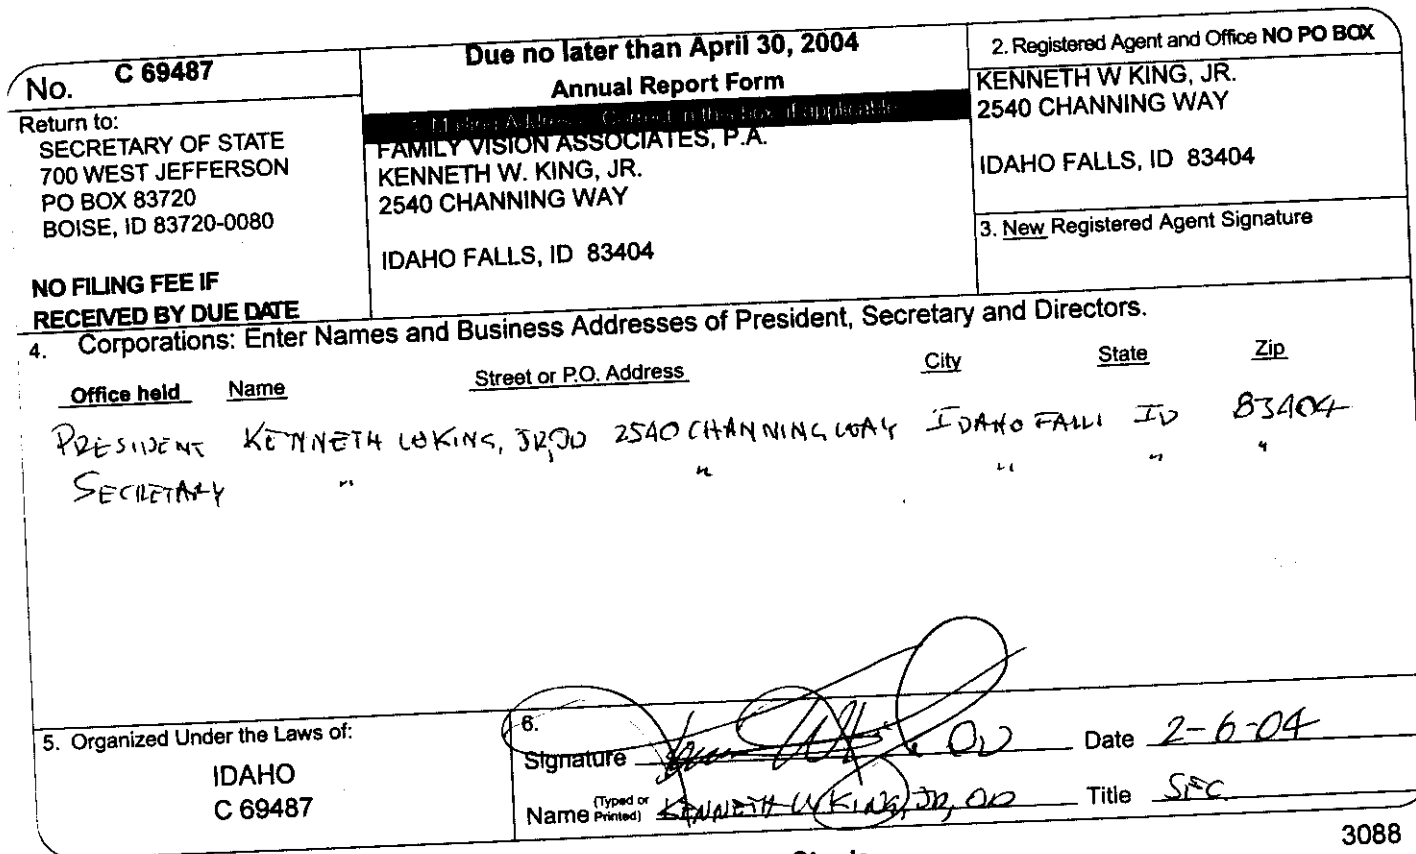 No. C 69487
Return to:
SECRETARY OF STATE
700 WEST JEFFERSON
PO BOX 83720
BOISE, ID 83720-0080
NO FILING FEE IF
RECEIVED BY DUE DATE
Due no later than April 30, 2004
Annual Report Form
1. Mailing Address: Correct in this box, if applicable
FAMILY VISION ASSOCIATES, P.A.
KENNETH W. KING, JR.
2540 CHANNING WAY
IDAHO FALLS, ID 83404
2. Registered Agent and Office NO PO BOX
KENNETH W KING, JR.
2540 CHANNING WAY
IDAHO FALLS, ID 83404
3. New Registered Agent Signature
4. Corporations: Enter Names and Business Addresses of President, Secretary and Directors.
Office held Name Street or P.O. Address City State Zip
PRESIDENT KENNETH W KING, JR, OD 2540 CHANNING WAY IDAHO FALLS ID 83404
SECRETARY " " " " "
5. Organized Under the Laws of:
IDAHO
C 69487
6.
Signature OD Date 2-6-04
Name (Typed or Printed) KENNETH W KING, JR, OD Title SEC
3088